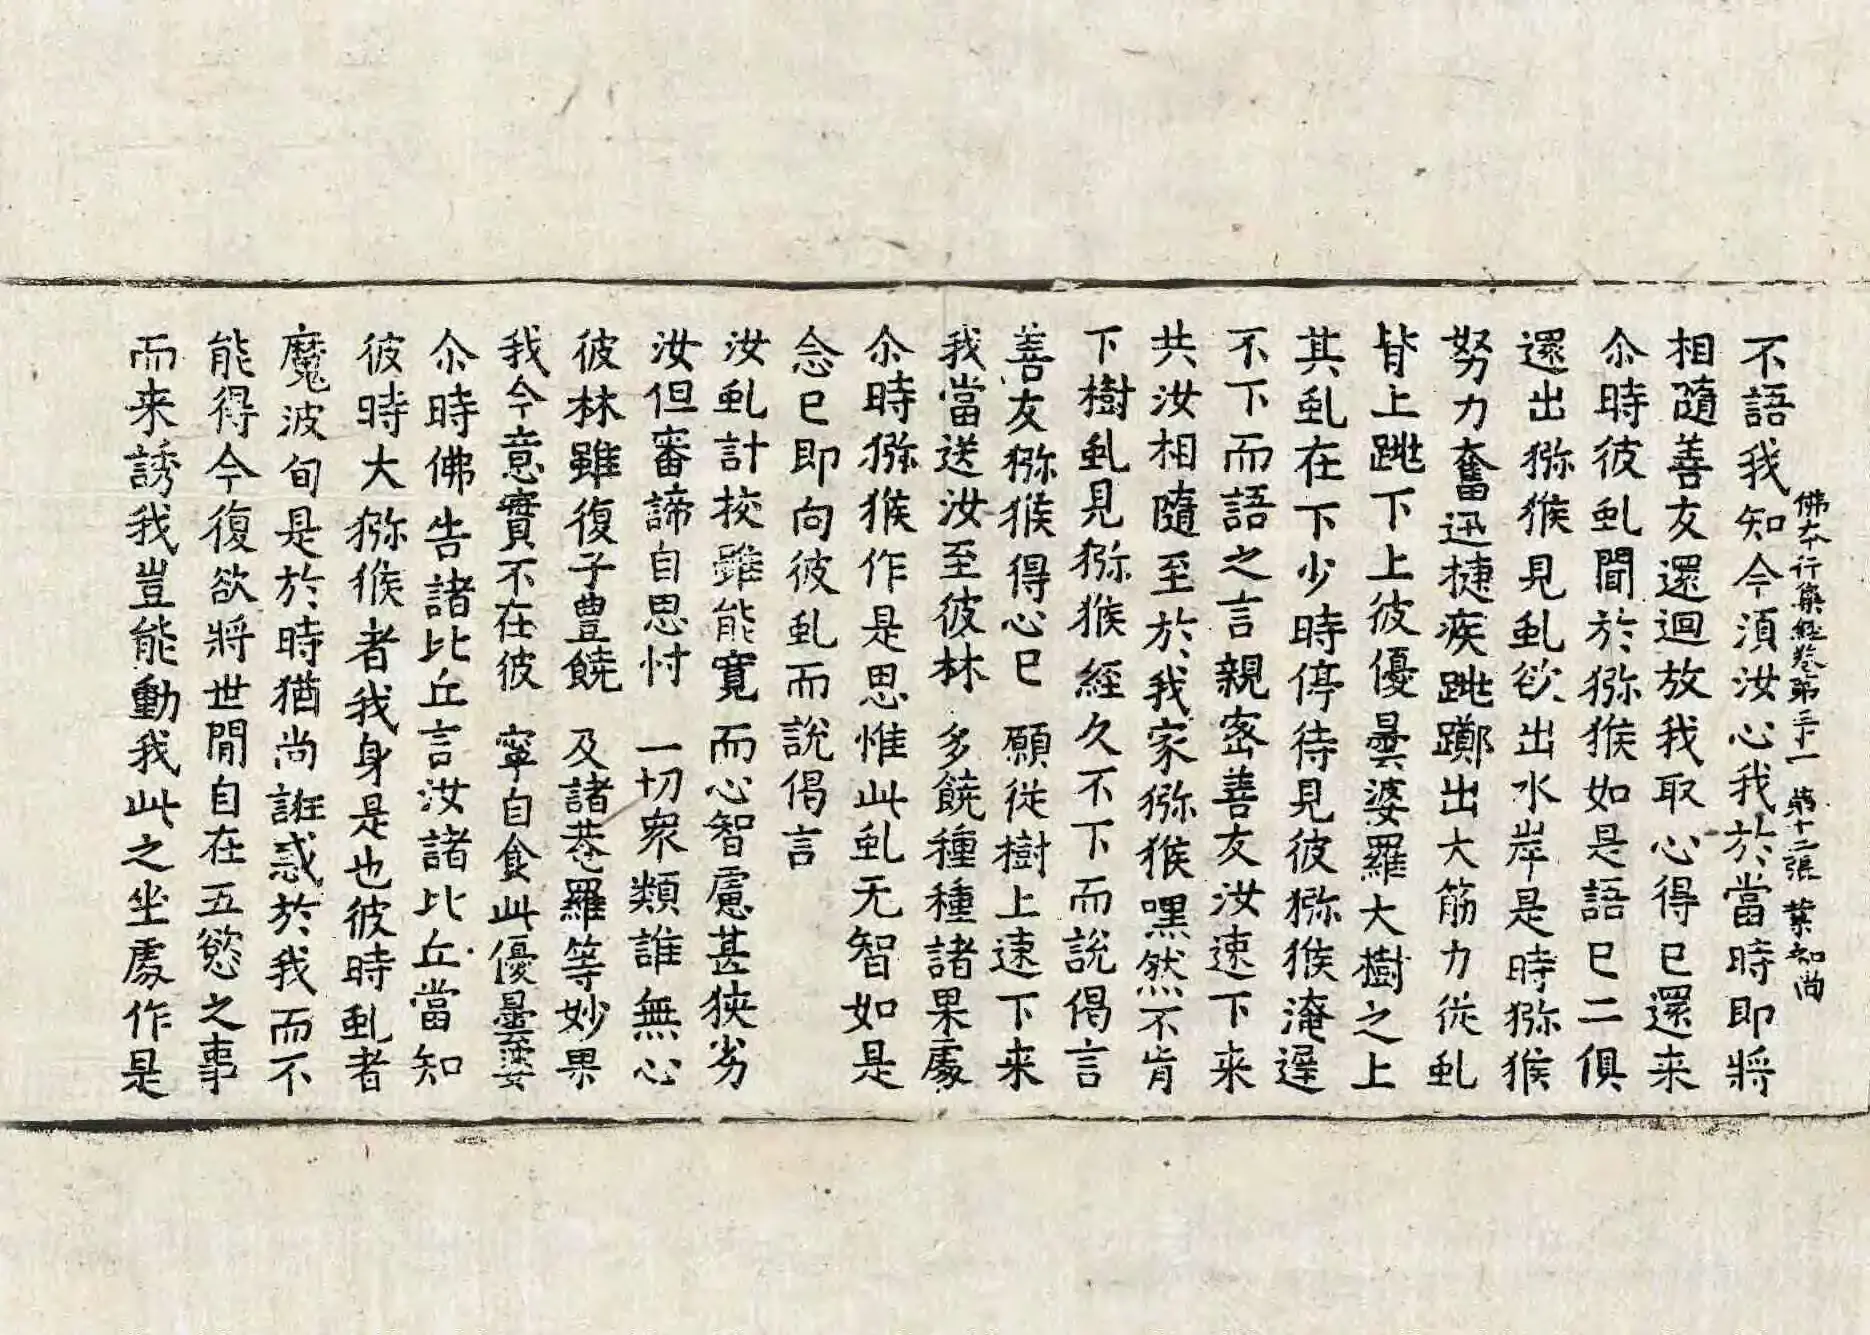 佛本行集經卷第三十一 第十二張 業 知尚
不語我知今須汝心我於當時即將
相隨善友還迴放我取心得已還来
尒時彼虬聞於猕猴如是語已二俱
還出猕猴見虬欲出水岸是時猕猴
努力奮迅捷疾跳躑出大筋力從虬
背上跳下上彼優曇婆羅大樹之上
其虬在下少時停待見彼猕猴淹遟
不下而語之言親密善友汝速下来
共汝相隨至於我家猕猴嘿然不肯
下樹虬見猕猴經久不下而說偈言
善友猕猴得心已 願從樹上速下来
我當送汝至彼林 多饒種種諸果處
尒時猕猴作是思惟此虬无智如是
念已即向彼虬而說偈言
汝虬計挍雖能寬 而心智慮甚狹劣
汝但審諦自思忖 一切衆類誰無心
彼林雖復子豊饒 及諸菴羅等妙果
我今意實不在彼 寧自食此優曇婆
尒時佛告諸比丘言汝諸比丘當知
彼時大猕猴者我身是也彼時虬者
魔波旬是於時猶尚誑惑於我而不
能得今復欲將世閒自在五慾之事
而来誘我豈能動我此之坐處作是